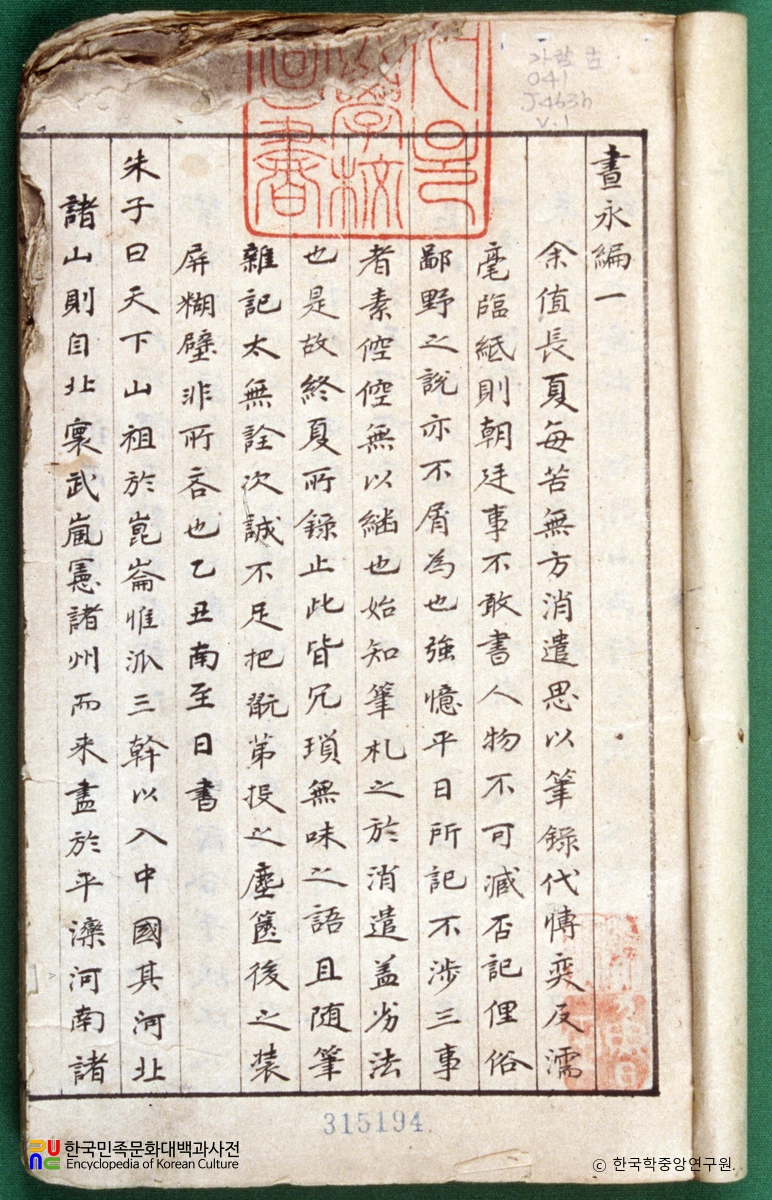 晝永編一
余值長夏每苦無方消遣思以筆錄代愽奕反濡
毫臨紙則朝廷事不敢書人物不可臧否記俚俗
鄙野之說亦不屑為也強憶平日所記不涉三事
者素倥倥無以継也始知筆札之於消遣盖劣法
也是故終夏所錄止此皆冗瑣無味之語且随筆
雜記太無詮次誠不足把翫第投之塵篋後之装
屏糊壁非所吝也乙丑南至日書
朱子曰天下山祖於崑崙惟派三幹以入中國其河北
諸山則自北寰武嵐憲諸州而来盡於平灤河南諸
가람 古
041
J463h
v.1
315194
한국민족문화대백과사전
Encyclopedia of Korean Culture
© 한국학중앙연구원.